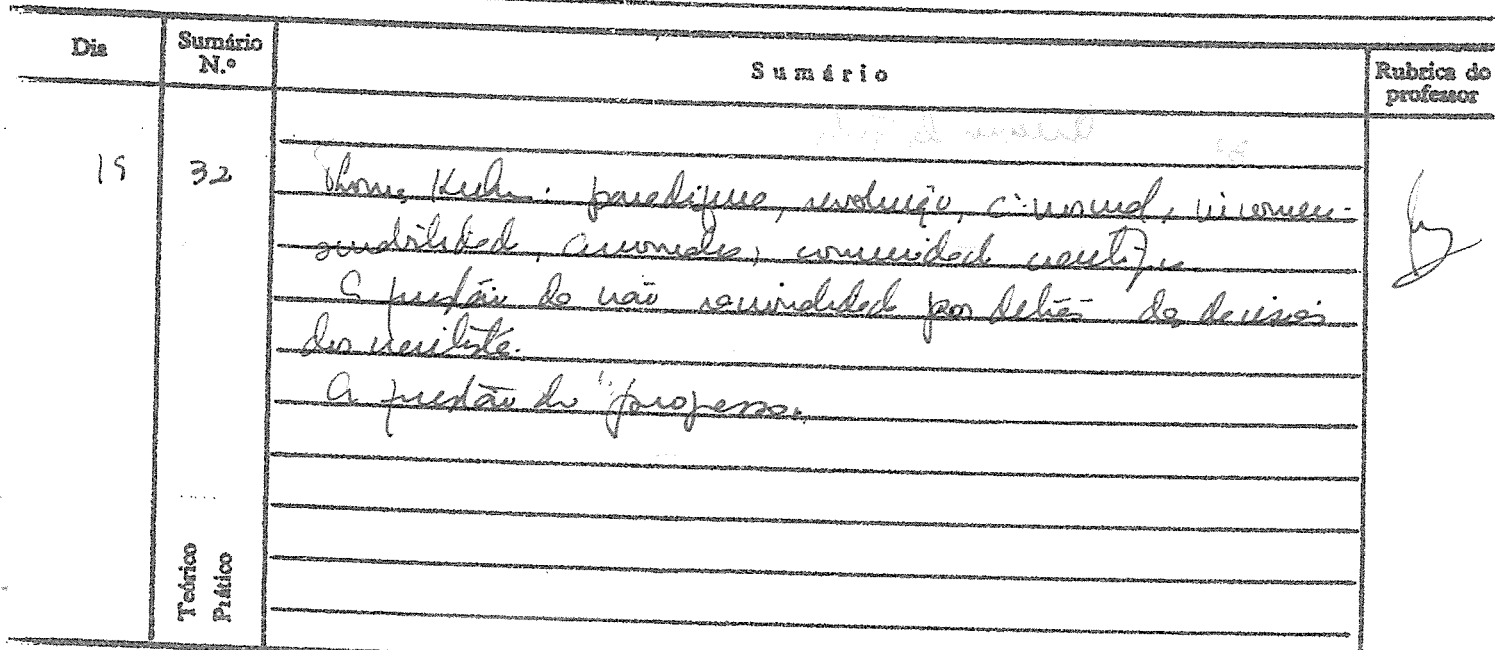 Dia
Sumário N.º
Sumário
Rubrica do professor
15 32 Thomas Kuhn: paradigma, revolução, c. normal, incomen-
surabilidade, anomalia, comunidade científica
A questão da não racionalidade por detrás das decisões
dos cientistas.
A questão do "progresso.
Teórico
Prático